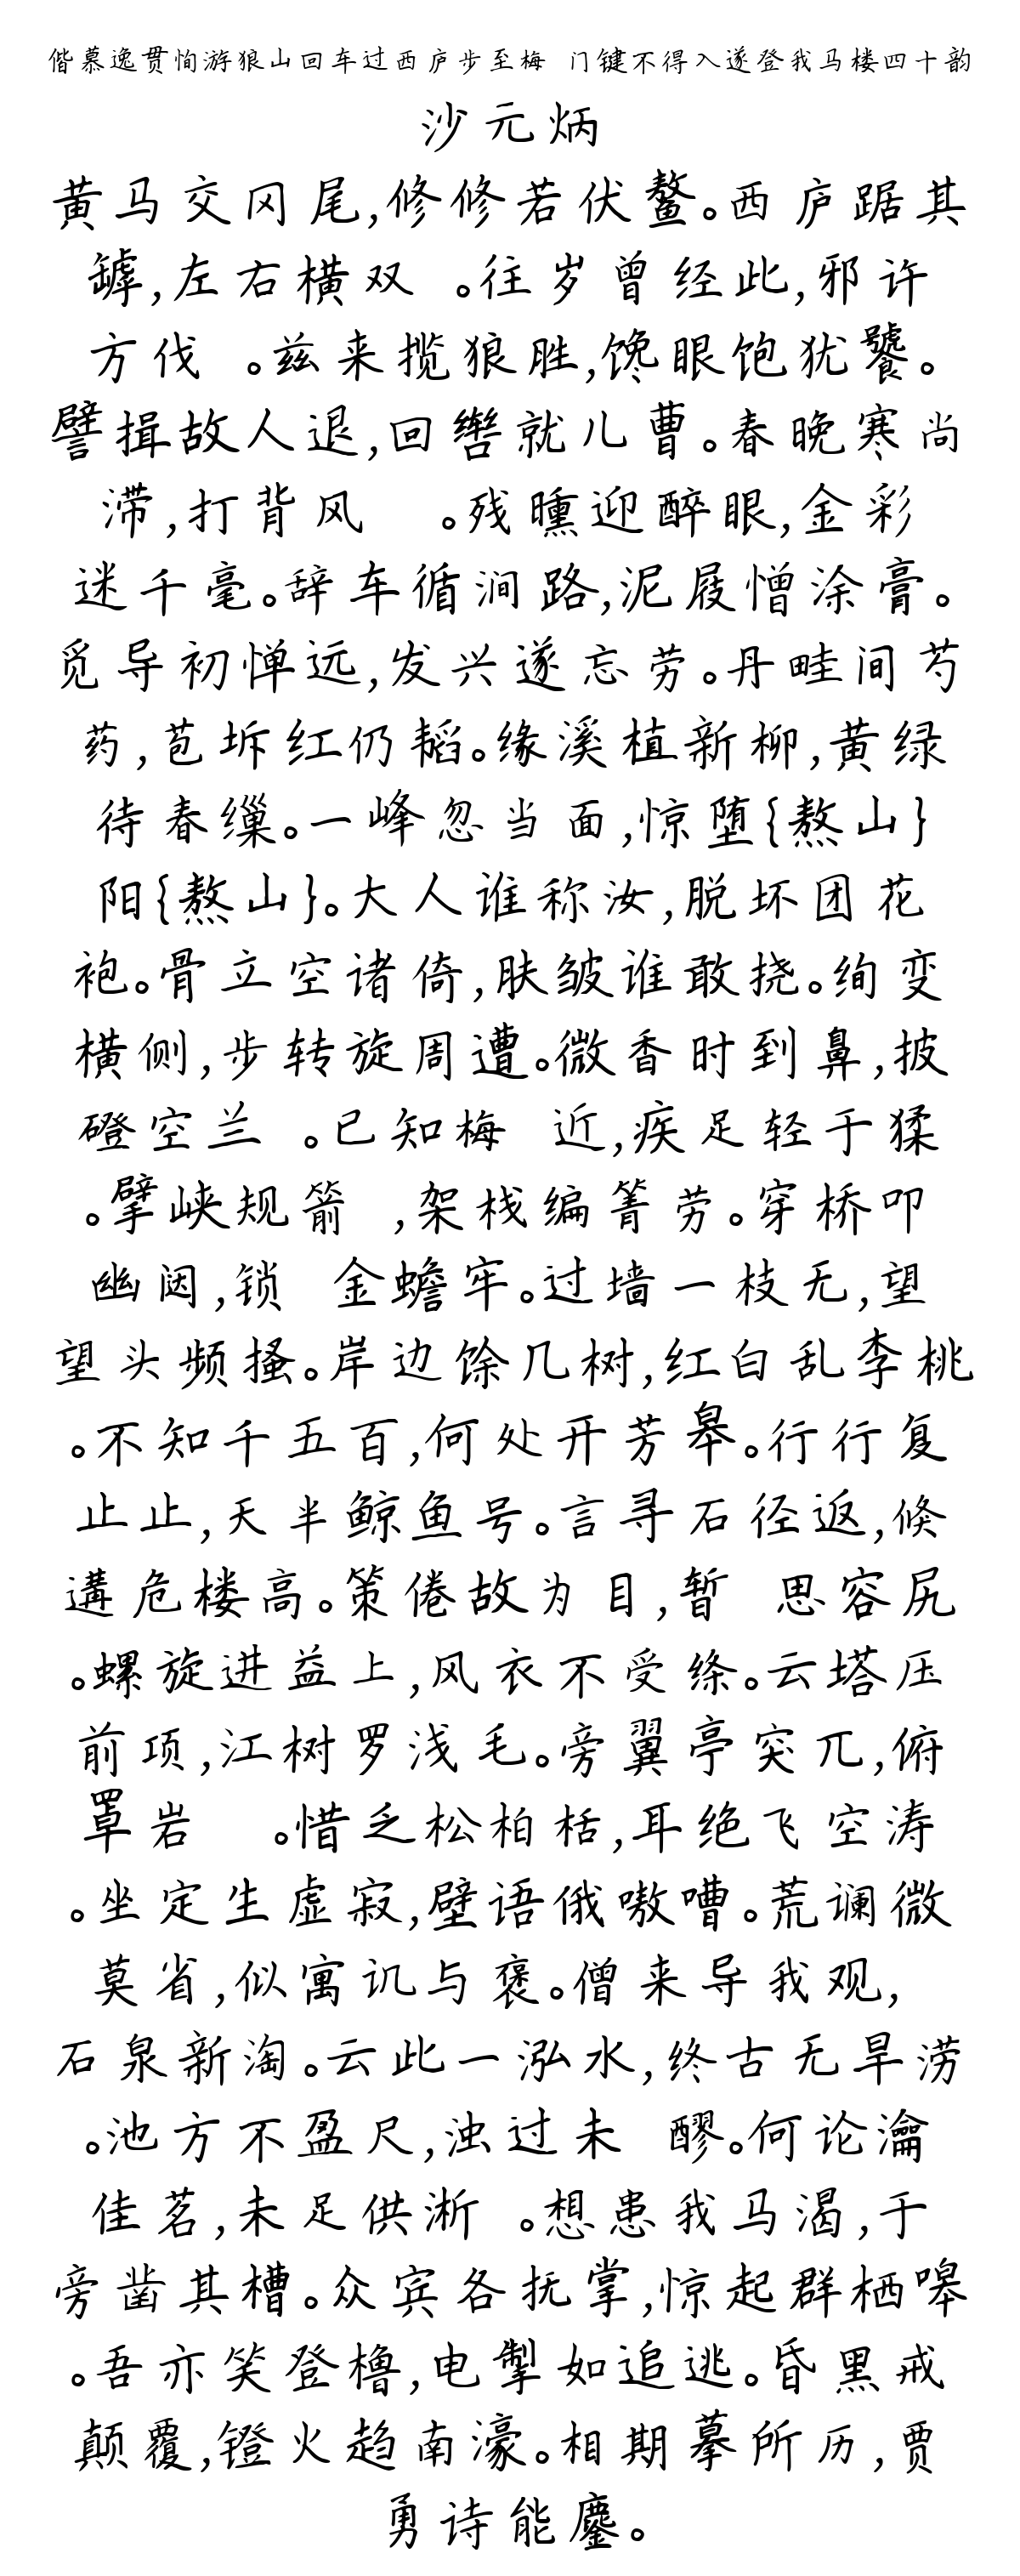 偕慕逸贯恂游狼山回车过西庐步至梅 门键不得入遂登我马楼四十韵
沙元炳
黄马交冈尾,修修若伏鳌。西庐踞其
罅,左右横双 。往岁曾经此,邪许
方伐 。兹来揽狼胜,馋眼饱犹饕。
譬揖故人退,回辔就儿曹。春晚寒尚
滞,打背风 。残曛迎醉眼,金彩
迷千毫。辞车循涧路,泥屐憎涂膏。
觅导初惮远,发兴遂忘劳。丹畦间芍
药,苞坼红仍韬。缘溪植新柳,黄绿
待春缫。一峰忽当面,惊堕{熬山}
阳{熬山}。大人谁称汝,脱坏团花
袍。骨立空诸倚,肤皱谁敢挠。绚变
横侧,步转旋周遭。微香时到鼻,披
磴空兰 。已知梅 近,疾足轻于猱
。擘峡规箭 ,架栈编箐劳。穿桥叩
幽闼,锁 金蟾牢。过墙一枝无,望
望头频搔。岸边馀几树,红白乱李桃
。不知千五百,何处开芳皋。行行复
止止,天半鲸鱼号。言寻石径返,倏
遘危楼高。策倦故为目,暂 思容尻
。螺旋进益上,风衣不受绦。云塔压
前项,江树罗浅毛。旁翼亭突兀,俯
罩岩 。惜乏松柏栝,耳绝飞空涛
。坐定生虚寂,壁语俄嗷嘈。荒谰微
莫省,似寓讥与褒。僧来导我观,
石泉新淘。云此一泓水,终古无旱涝
。池方不盈尺,浊过未 醪。何论瀹
佳茗,未足供淅 。想患我马渴,于
旁凿其槽。众宾各抚掌,惊起群栖嗥
。吾亦笑登橹,电掣如追逃。昏黑戒
颠覆,镫火趋南濠。相期摹所历,贾
勇诗能鏖。